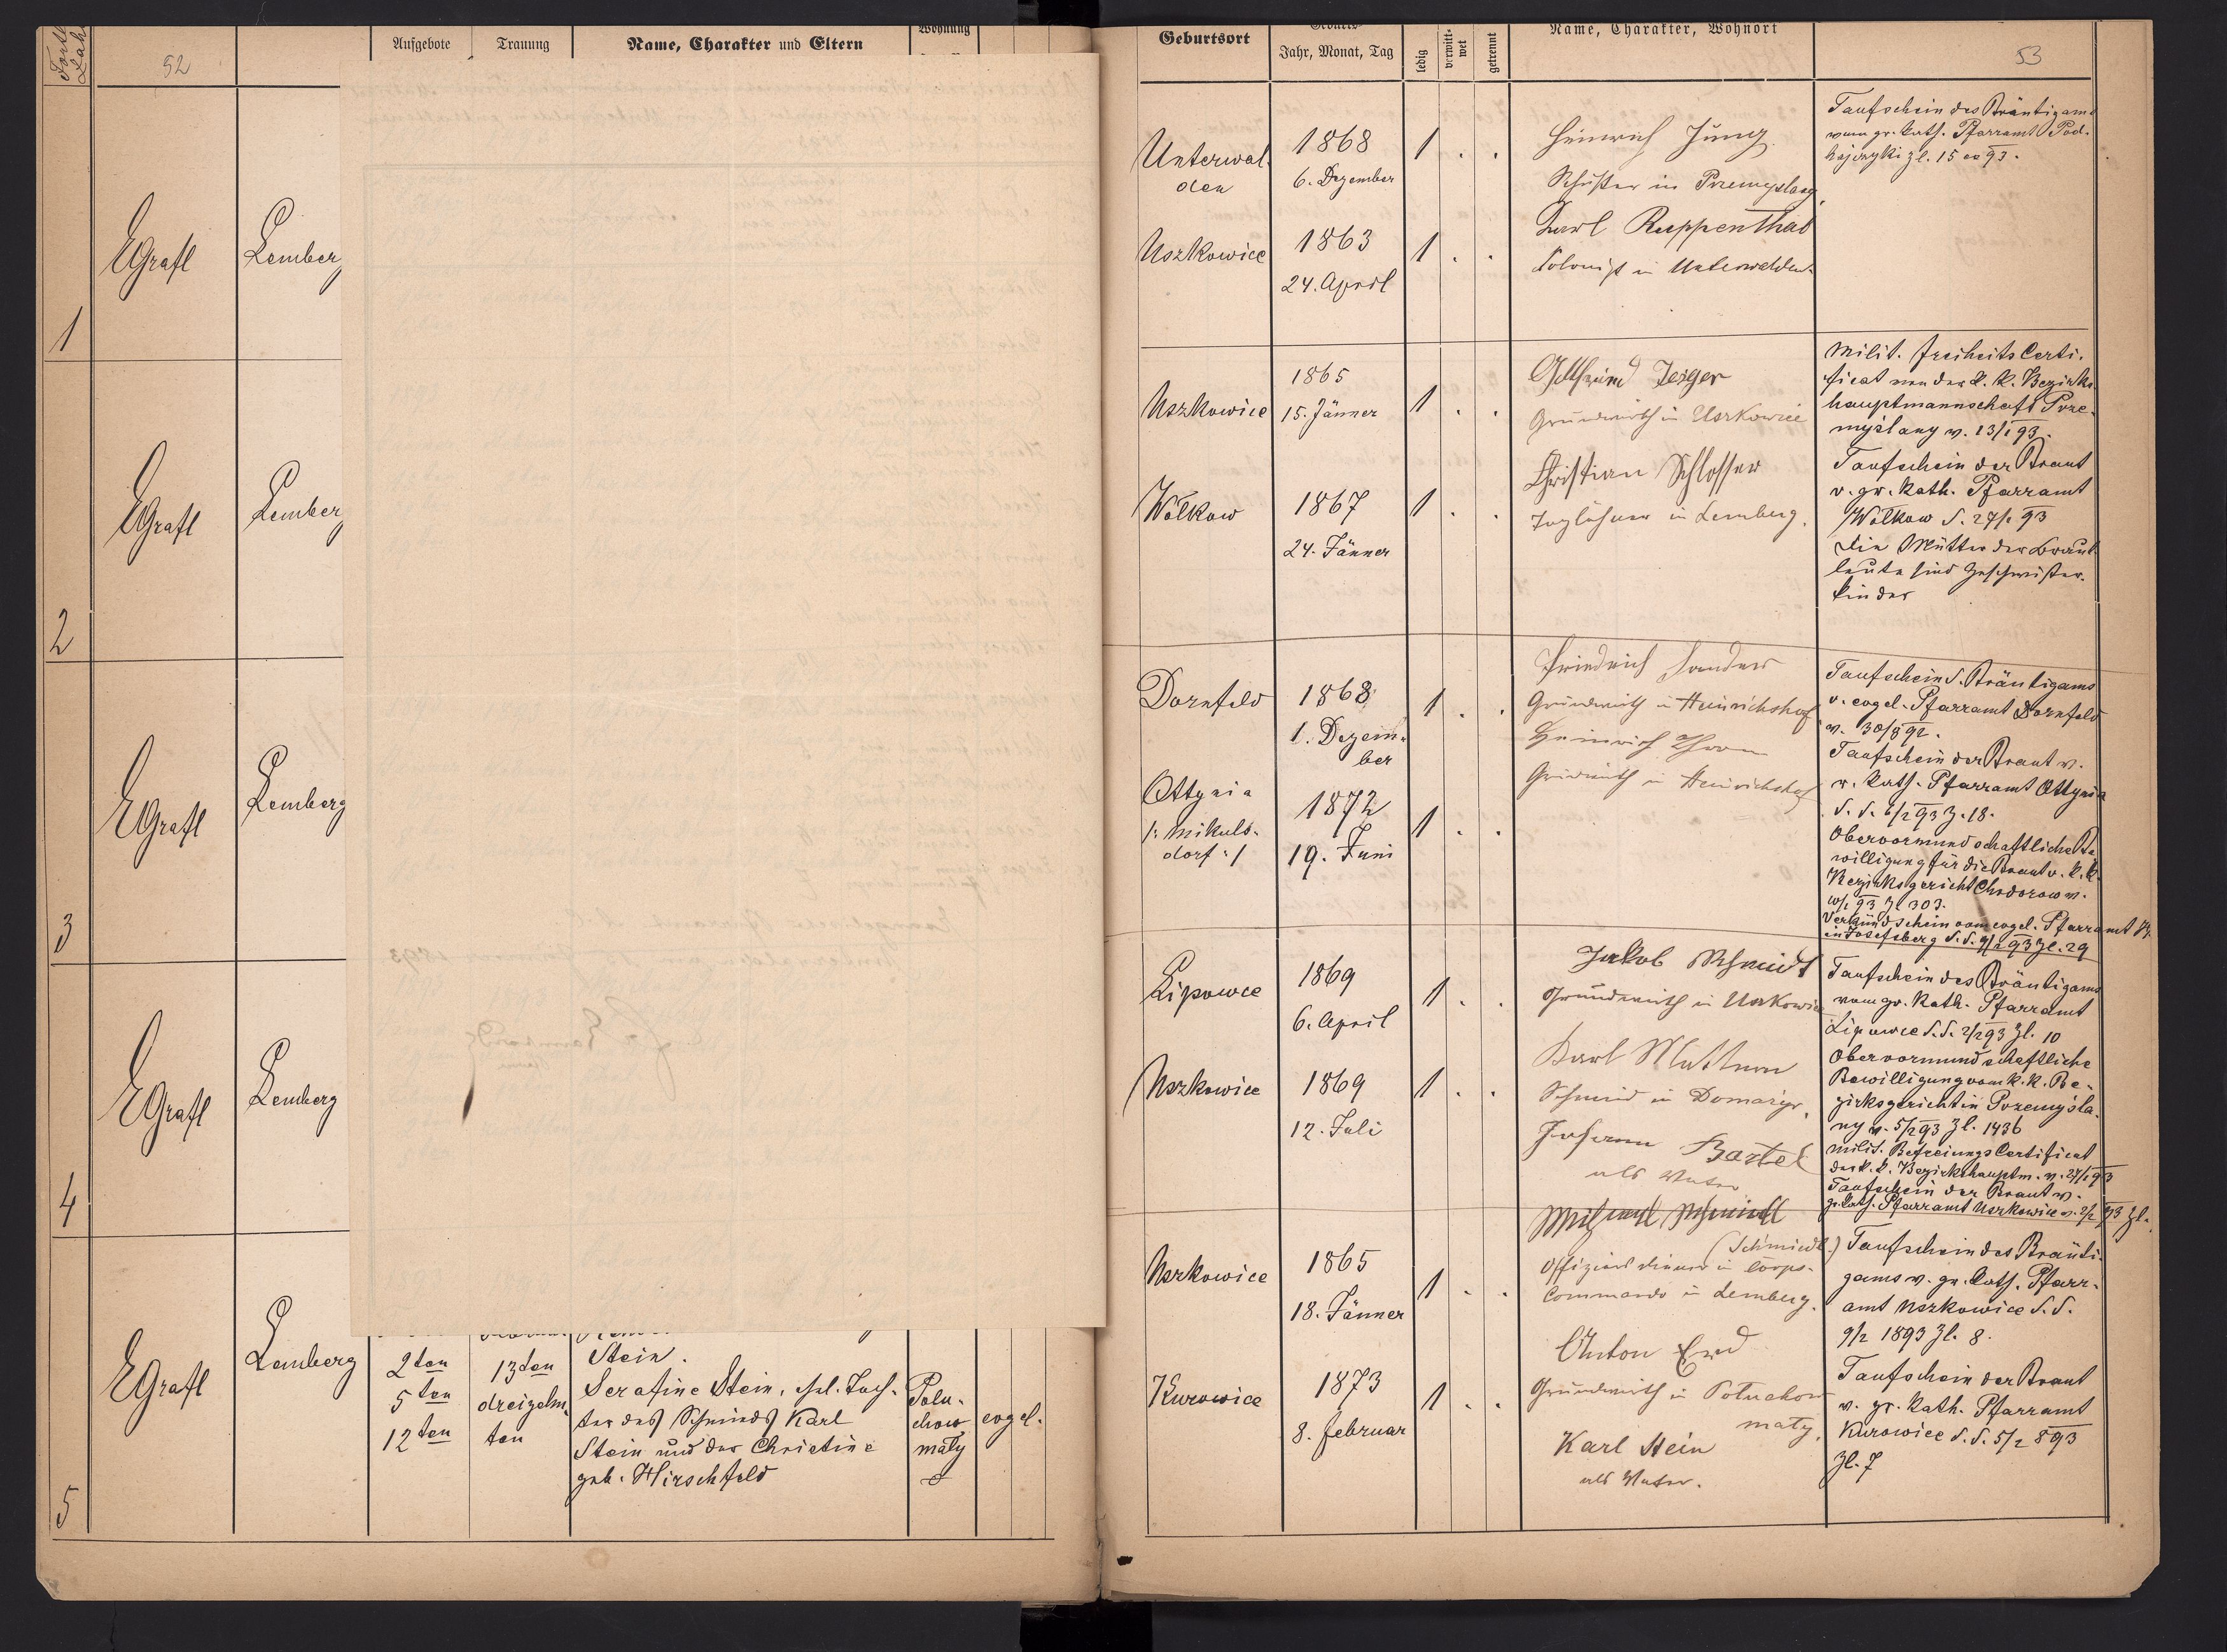 52
Aufgebote
Trauung
Name, Charakter und Eltern
Wohnung
1
EGrafl
Lemberg
2
EGrafl
Lemberg
3
EGrafl
Lemberg
4
EGrafl
Lemberg
5
EGrafl
Lemberg
2ten
5ten
12ten
13ten
dreizehn
ten
Stein.
Serafine Stein, ehel. Toch-
ter des Schmieds Karl
Stein und der Christine
geb. Hirschfeld
Polu-
chow
mały
evgel.
Geburtsort
Jahr, Monat, Tag
ledig
verwitt-
wet
getrennt
Name, Charakter, Wohnort
53
Unterwal-
den
1868
6. Dezember
1 . .
Heinrich Jung.
Schuster in Przemyslany
Uszkowice
1863
24. April
1 . .
Karl Ruppenthal
Kolonist in Unterwalden.
Taufschein des Bräutigams
vom gr. kath. Pfarramt Pod-
hajczyki Zl. 15 ex 93.
Uszkowice
1865
15. Jänner
1 . .
Grundwirth in Uszkowice
Wołkow
1867
24. Jänner
1 . .
Christian Schlosser
Taglöhner in Lemberg.
Milit. Freiheits Certi-
ficat von der k. k. Bezirks-
hauptmannschaft Prze-
myślany v. 13/1 93.
Taufschein der Braut
v. gr. kath. Pfarramt
Wołkow d. 27/1 93
Die Mütter der Braut-
leute sind Geschwister-
kinder
Dornfeld
1868
1. Dezem-
ber
1 . .
Friedrich Sander
Grundwirth in Heinrichshof
Ottynia
/: Mikuls-
dorf :/
1872
19. Juni
1 . .
Heinrich
Grundwirth in Heinrichshof
Taufschein d. Bräutigams
v. evgel. Pfarramt Dornfeld
v. 30/8 92.
Taufschein der Braut v.
r. kath. Pfarramt Ottynia
d. d. 6/2 93 Z. 18.
Obervormundschaftliche Be
willigung für die Braut v. k. k.
Bezirksgericht Chodorow v.
93 Zl 303.
Verkündschein vom evgel. Pfarramt
in Josefsberg d. d. 93 Zl. 29
Lipowce
1869
6. April
1 . .
Jakob Schmidt
Grundwirth in Uszkowice
Uszkowice
1869
12. Juli
1 . .
Karl
Schmied in Domazyr,
Johann Bartel
als Vater
Taufschein des Bräutigams
vom gr. kath. Pfarramt
Lipowce d. d. 2/2 93 Zl. 10
Obervormundschaftliche
Bewilligung vom k. k. Be-
zirksgericht in Przemyśla-
ny v. 5/2 93 Zl. 1436
Milit. Befreiungs Certificat
der k. k. Bezirkshauptm. v. 27/1 93
Taufschein der Braut v.
gr. kath. Pfarramt Uszkowice v. 2/2 93 Zl.
Uszkowice
1865
18. Jänner
1 . .
(Schmiedl.)
Offiziersdiener in Corps-
Commando in Lemberg.
Kurowice
1873
8. Februar
1 . .
Anton Erd
Grundwirth in Połuchow
mały,
Karl Stein
als Vater.
Taufschein des Bräuti-
gams v. gr. kath. Pfarr-
amt Uszkowice d. d.
9/2 1893 Zl. 8.
Taufschein der Braut
v. gr. kath. Pfarramt
Kurowice d. d. 5/2 893
Zl. 7